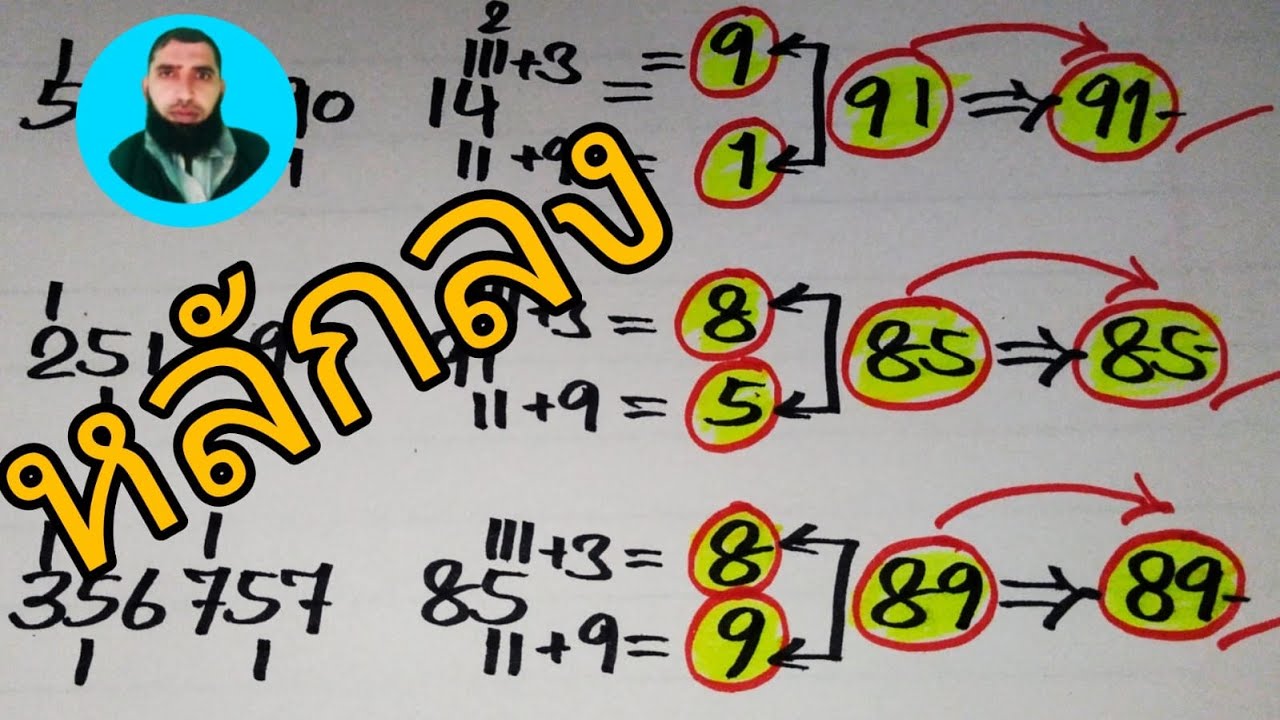 1 2
5 90 14 III+3 = = 9 91 ⇒ 91-
1 11 +9 = 1
หลักลง
1
251 9 91 III+3 = 8 85 ⇒ 85-
11+9 = 5
1 1 III+3 = 8
356 757 85 89 ⇒ 89-
1 1 11+9 = 9